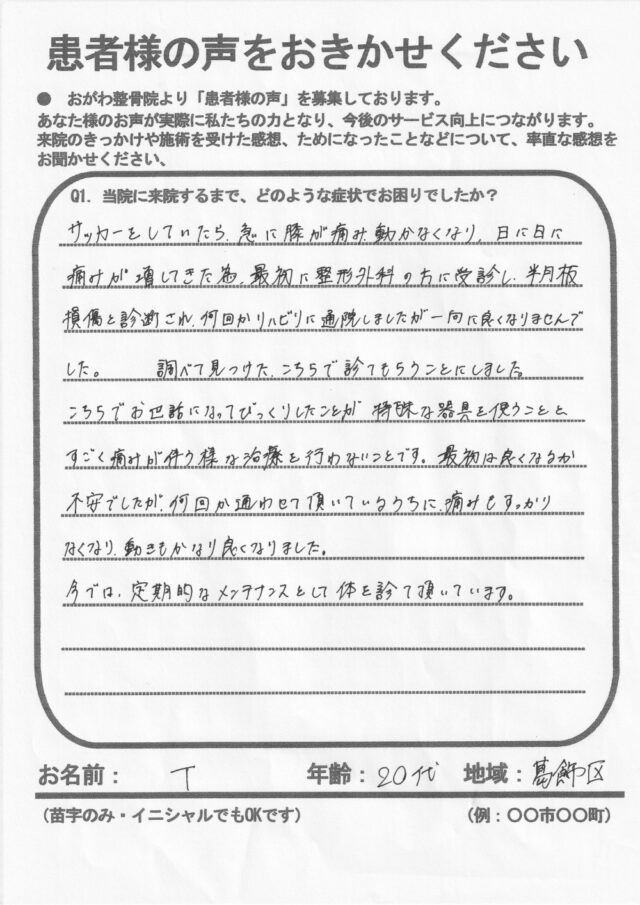 患者様の声をおきかせください
● おがわ整骨院より「患者様の声」を募集しております。
あなた様のお声が実際に私たちの力となり、今後のサービス向上につながります。
来院のきっかけや施術を受けた感想、ためになったことなどについて、率直な感想を
お聞かせください、
Q1. 当院に来院するまで、どのような症状でお困りでしたか？
サッカーをしていたら、急に膝が痛み動かなくなり、日に日に
痛みが増してきた為、最初に整形外科の方に受診し、半月板
損傷と診断され、何回かリハビリに通院しましたが一向に良くなりませんで
した。 調べて見つけた、こちらで診てもらうことにしました。
こちらでお世話になってびっくりしたことが 特殊な器具を使うことと
すごく痛みが伴う様な治療を行わないことです。最初は良くなるか
不安でしたが、何回か通わせて頂いているうちに、痛みもすっかり
なくなり、動きもかなり良くなりました。
今では、定期的なメンテナンスとして体を診て頂いています。
お名前： T 年齢：20代 地域：葛飾区
（苗字のみ・イニシャルでもOKです） （例：〇〇市〇〇町）